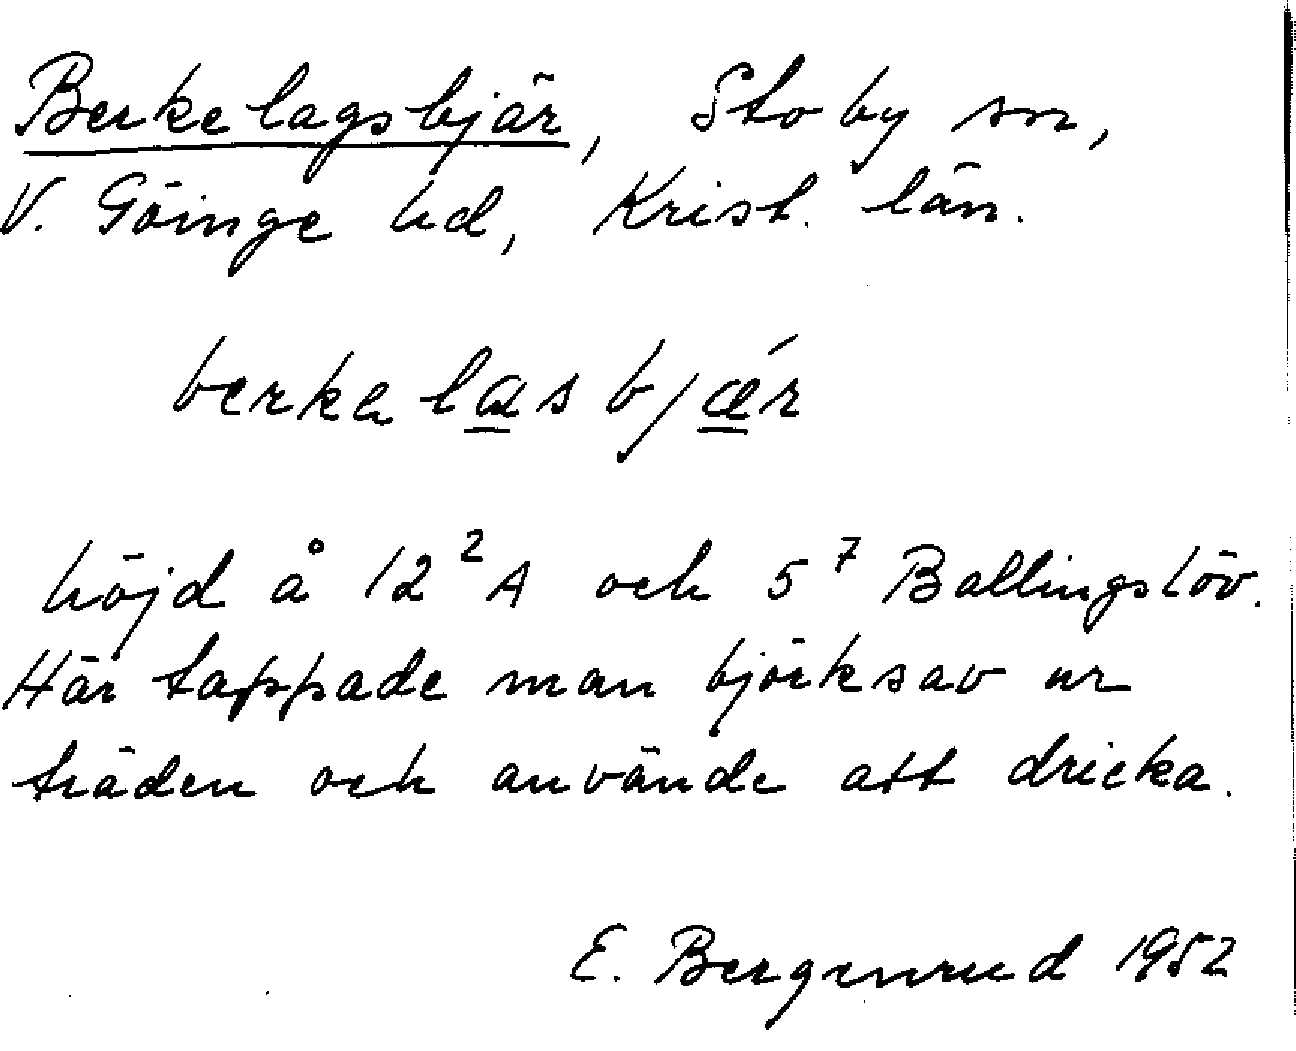 Berkelagsbjär, Stoby sn,
V. Göinge hd, Krist. län.
berkalasbjǽr
höjd å 12² A och 5⁷ Ballingslöv.
Här tappade man björksav ur
träden och använde att dricka.
E. Bergenrud 1952